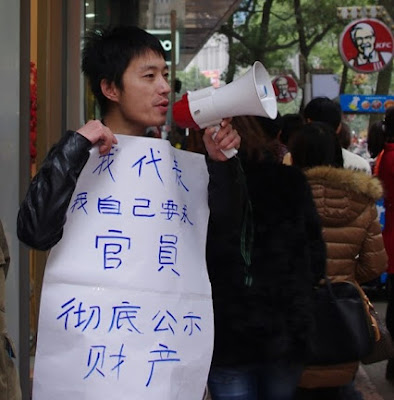 我代表
我自己要求
官員
彻底公示
财产
KFC